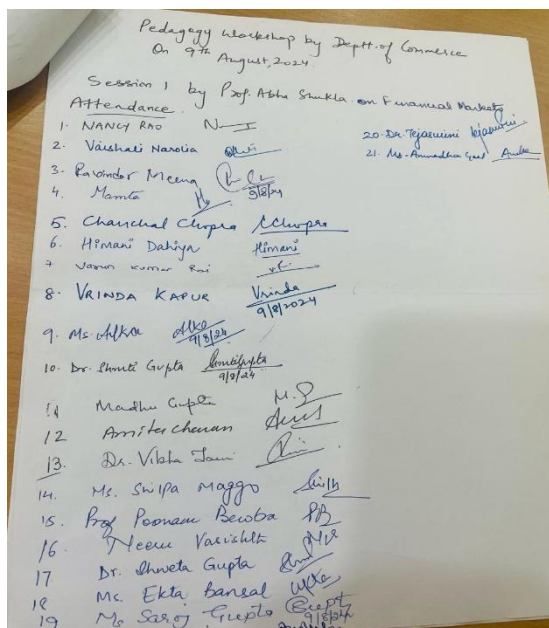 Pedagogy workshop by Deptt. of Commerce
On 9th August, 2024.
Session 1 by Prof. Abha Shukla on Financial Markets
Attendance.
1. NANCY RAO
2. Vaishali Narolia
3. Ravinder Meena 9/8/24
4. Mamta
5. Chanchal Chopra CChopra
6. Himani Dahiya Himani
7 Varun Kumar Rai
8. VRINDA KAPUR Vrinda
9/8/2024
9. Ms. Alka Alka
9/8/24
10. Dr. Shruti Gupta Shrutigupta
9/8/24
11 Madhu Gupta M.G
12 Amita Charan
13. Dr. Vibha Jain
14. Ms. Shilpa Maggo
15. Prof Poonam PB
16. Neeru Vasishth
17 Dr. Shweta Gupta
18 Ms. Ekta Bansal
19 Ms Saroj Gupta
9/8/24
20. Dr. Tejaswini Tejaswini
21. Ms. Anuradha Goel